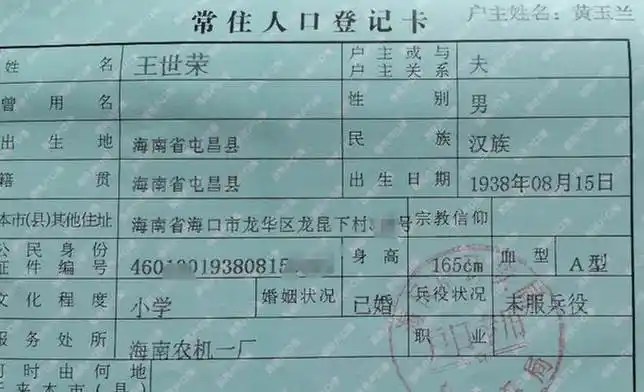 常住人口登记卡
户主姓名：黄玉兰
姓名 王世荣 户主或与户主关系 夫
曾用名 性别 男
出生地 海南省屯昌县 民族 汉族
籍贯 海南省屯昌县 出生日期 1938年08月15日
本市(县)其他住址 海南省海口市龙华区龙昆下村 号 宗教信仰
公民身份证件编号 460 019380815 身高 165cm 血型 A型
文化程度 小学 婚姻状况 已婚 兵役状况 未服兵役
服务处所 海南农机一厂 职业
何时由何地
来本市(县)